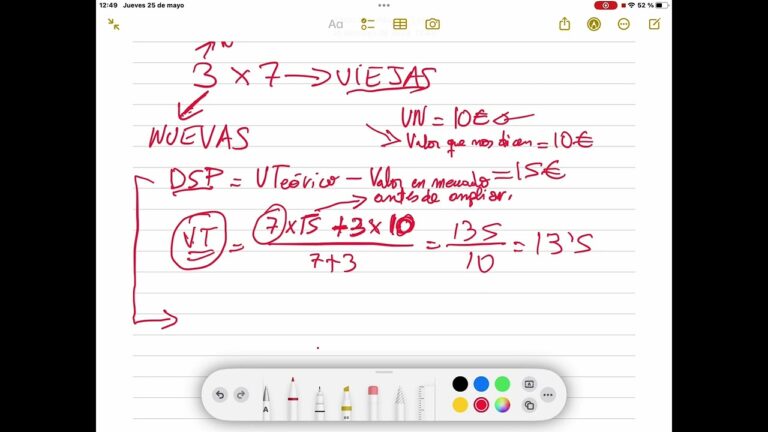 12:49 Jueves 25 de mayo
52 %
Aa
N
3 × 7 → VIEJAS
NUEVAS
VN = 10€
Valor que nos dicen = 10€
DSP = VTeórico - Valor en mercado = 15€
antes de ampliar.
VT = 7×15 + 3×10 / 7+3 = 135 / 10 = 13'5
A